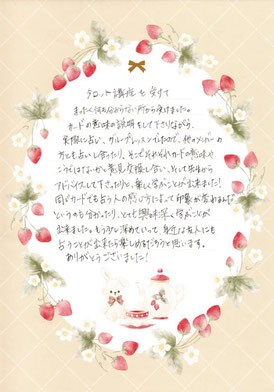 タロット講座を受けて
まったく何も分からない所から受けました。
カードの意味の説明をして下さりながら、
実際に占い、グループレッスンでしたので、他のメンバーの
方とも占い合ったり、そこでそれぞれカードの意味や
こうではないかと意見交換し合い、そして先生から
アドバイスして下さったりと、楽しく学ぶことが出来ました!
同じカードでも占う人の思い方によって印象が変わるんだ
というのも分かったり、とても興味深く学ぶことが
出来ました。もう少し深めていって、身近な友人にも
占うことが出来たら楽しめるだろうと思います。
ありがとうございました!